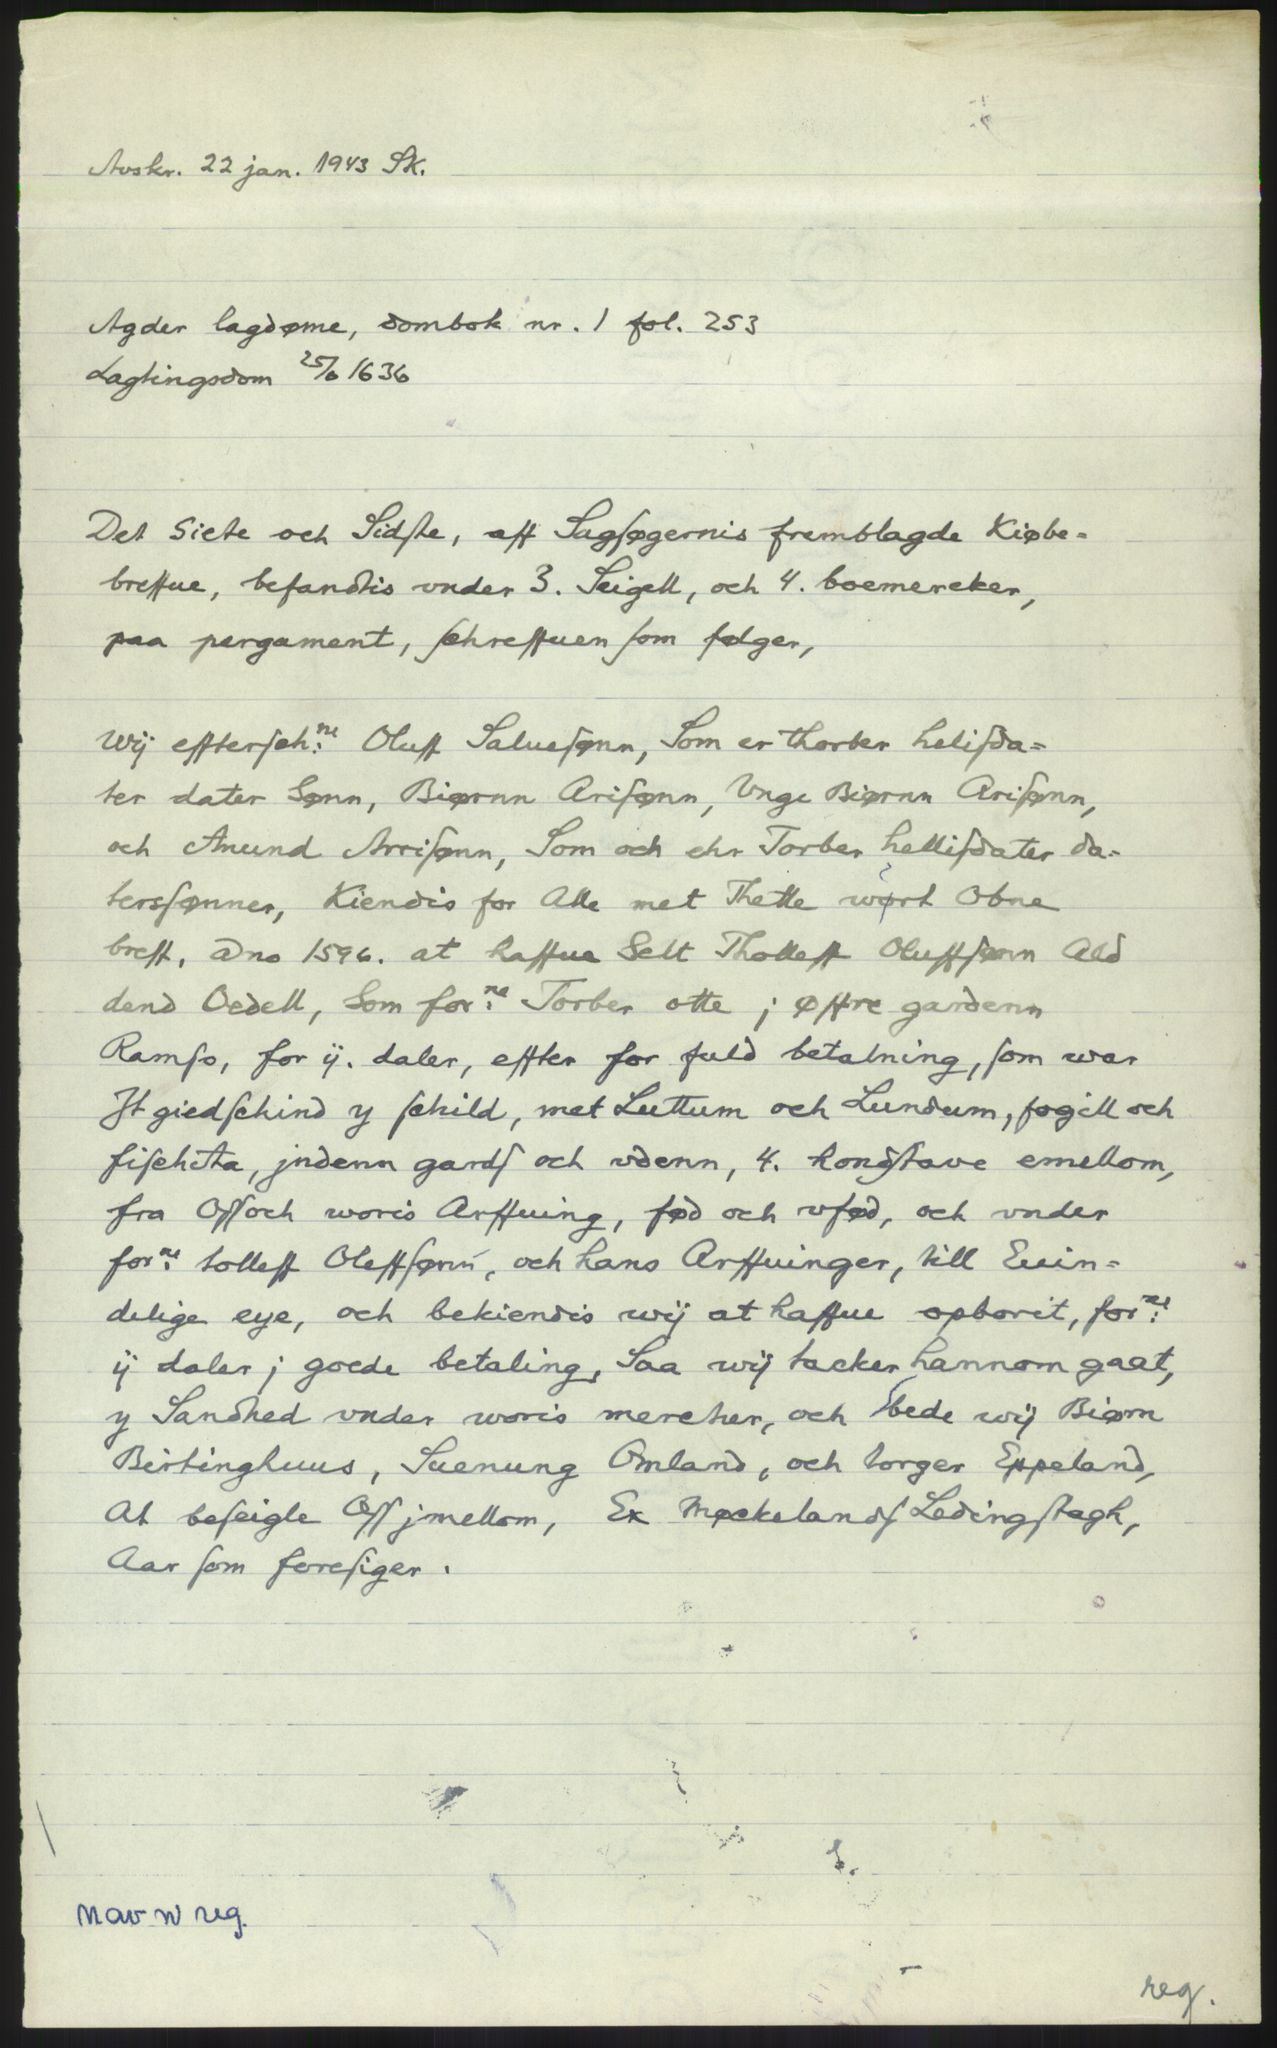 Avskr. 22 jan. 1943 SK.
Agder lagdøme, dombok nr. 1 fol. 253
Lagtingsdom 25/6 1636
Det Siete och Sidste, aff Sagsøgernis fremblagde Kiøbe-
breffue, befandtis vnder 3. Seigell, och 4. boemercker,
paa pergament, schreffuen som følger,
Wij effterschne: Oluff Saluesønn, Som er thorber helisda-
ter dater Sønn, Biørnn Arisønn, Unge Biørnn Arisønn,
och Amund Arrisønn, Som och ehr Torber hellisdater da-
terssønner, Kiendis for Alle met Thette wort Obne
breff, Ao no 1596. at haffue Selt Tholleff Oluffsønn Ald
dend Oedell, Som forne: Torber otte j øffre gardenn
Ramso, for ij. daler, effter for fuld betalning, som war
Jt giedschind y schild, met Luttum och Lundum, fogell och
fischitta, jndenn gards och vdenn, 4. hondstave emellom,
fra Oss och woris Arffuing, fød och vfød, och vnder
forne: tolleff Oleffsønn, och hans Arffuinger, till Euin-
delige eye, och bekiendis wij at haffue opborit, forne:
ij daler j goede betaling, Saa wij tacker hannom gaat,
y Sandhed vnder woris mercher, och bede wij Biørn
Birtinghuus, Suenung Omland, och torger Eppeland,
At beseigle Oss jmellom, Ex Møckelands Ledingstagh,
Aar som foresiger.
reg.